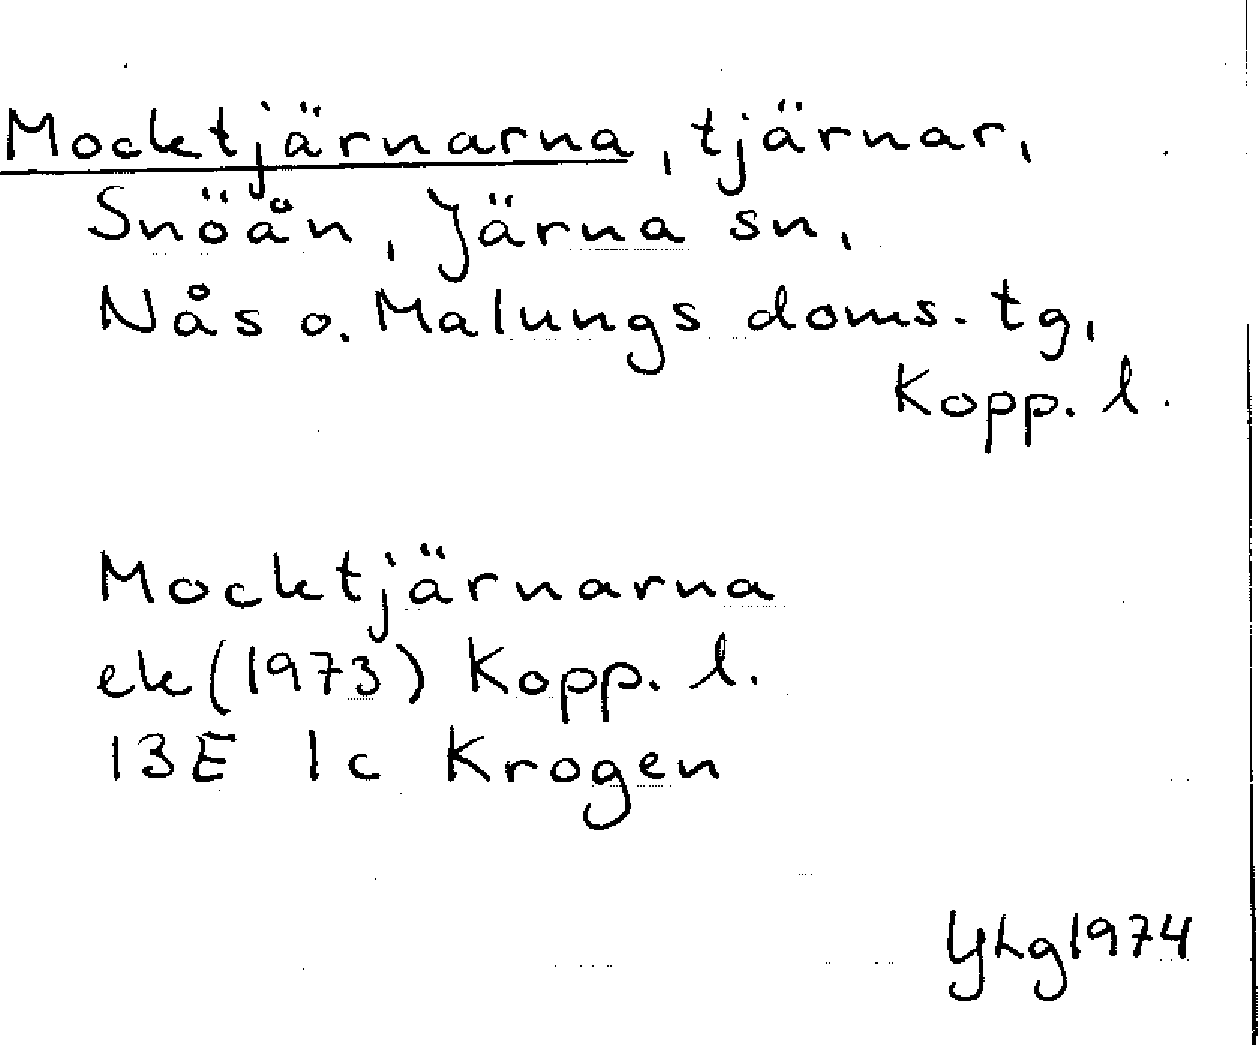 Mocktjärnarna, tjärnar,
Snöån, Järna sn,
Nås o. Malungs doms. tg,
Kopp. l.
Mocktjärnarna
ek (1973) Kopp. l.
13E 1c Krogen
YLg 1974